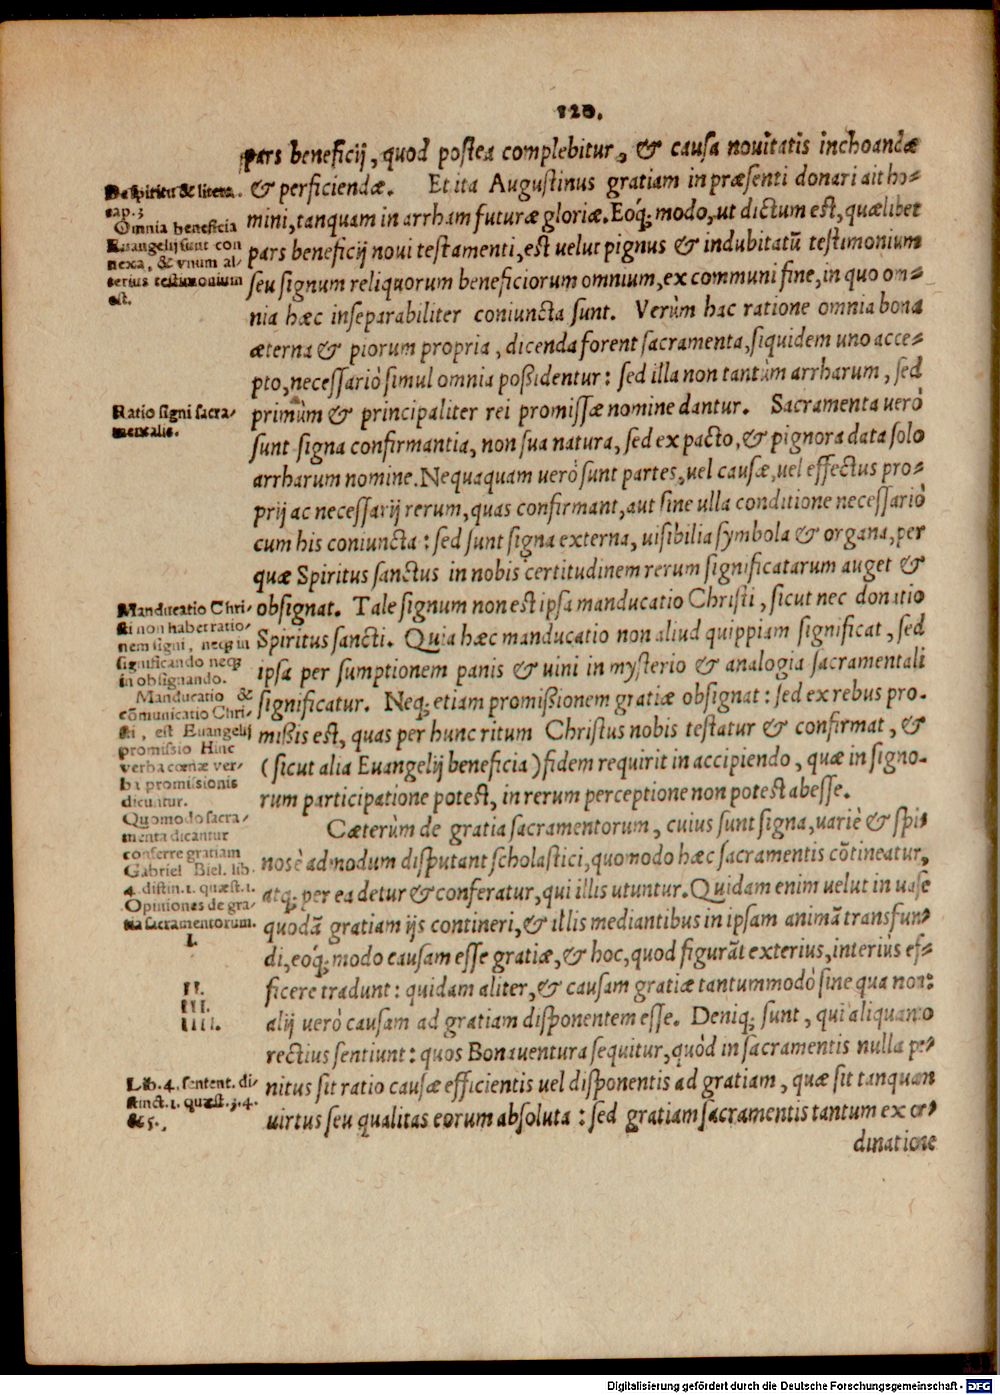 120.
pars beneficij, quod postea complebitur, & causa nouitatis inchoandæ
& perficiendæ. Et ita Augustinus gratiam in præsenti donari ait ho-
mini, tanquam in arrham futuræ gloriæ. Eoq́; modo, ut dictum est, quælibet
pars beneficij noui testamenti, est uelut pignus & indubitatū testimonium
seu signum reliquorum beneficiorum omnium, ex communi fine, in quo om-
nia hæc inseparabiliter coniuncta sunt. Verùm hac ratione omnia bona
æterna & piorum propria, dicenda forent sacramenta, siquidem uno acce-
pto, necessariò simul omnia poßidentur: sed illa non tantùm arrharum, sed
primùm & principaliter rei promissæ nomine dantur. Sacramenta uerò
sunt signa confirmantia, non sua natura, sed ex pacto, & pignora data solo
arrharum nomine. Nequaquam uerò sunt partes, uel causæ, uel effectus pro-
prij ac necessarij rerum, quas confirmant, aut sine ulla conditione necessariò
cum his coniuncta: sed sunt signa externa, uisibilia symbola & organa, per
quæ Spiritus sanctus in nobis certitudinem rerum significatarum auget &
obsignat. Tale signum non est ipsa manducatio Christi, sicut nec donatio
Spiritus sancti. Quia hæc manducatio non aliud quippiam significat, sed
ipsa per sumptionem panis & uini in mysterio & analogia sacramentali
significatur. Neq; etiam promißionem gratiæ obsignat: sed ex rebus pro-
mißis est, quas per hunc ritum Christus nobis testatur & confirmat, &
(sicut alia Euangelij beneficia) fidem requirit in accipiendo, quæ in signo-
rum participatione potest, in rerum perceptione non potest abesse.
Cæterùm de gratia sacramentorum, cuius sunt signa, uariè & spi
nosè admodum disputant scholastici, quomodo hæc sacramentis cōtineatur,
atq; per ea detur & conferatur, qui illis utuntur. Quidam enim uelut in uase
quodā gratiam ijs contineri, & illis mediantibus in ipsam animā transfun-
di, eoq́; modo causam esse gratiæ, & hoc, quod figurāt exterius, interiùs ef-
ficere tradunt: quidam aliter, & causam gratiæ tantummodò sine qua non:
alij uerò causam ad gratiam disponentem esse. Deniq; sunt, qui aliquanto
rectius sentiunt: quos Bonauentura sequitur, quòd in sacramentis nulla pe-
nitus sit ratio causæ efficientis uel disponentis ad gratiam, quæ sit tanquam
uirtus seu qualitas eorum absoluta: sed gratiam sacramentis tantum ex or-
dinatione
De spiritu & litera.
cap. 3
Omnia beneficia
Euangelij sunt con
nexa, & vnum al-
terius testimonium
est.
Ratio signi sacra-
mentalis.
Manducatio Chri-
sti non habet ratio-
nem signi, neq; in
significando neq;
in obsignando.
Manducatio &
cōmunicatio Chri-
sti, est Euangelij
promissio Hinc
verba cœnæ ver-
ba promissionis
dicuntur.
Quomodo sacra-
menta dicantur
conferre gratiam
Gabriel Biel. lib.
4. distin. 1. quæst. 1.
Opiniones de gra-
tia sacramentorum.
I.
II.
III.
IIII.
Lib. 4. sentent. di-
stinct. 1. quæst. 3. 4.
& 5.
Digitalisierung gefördert durch die Deutsche Forschungsgemeinschaft - DFG